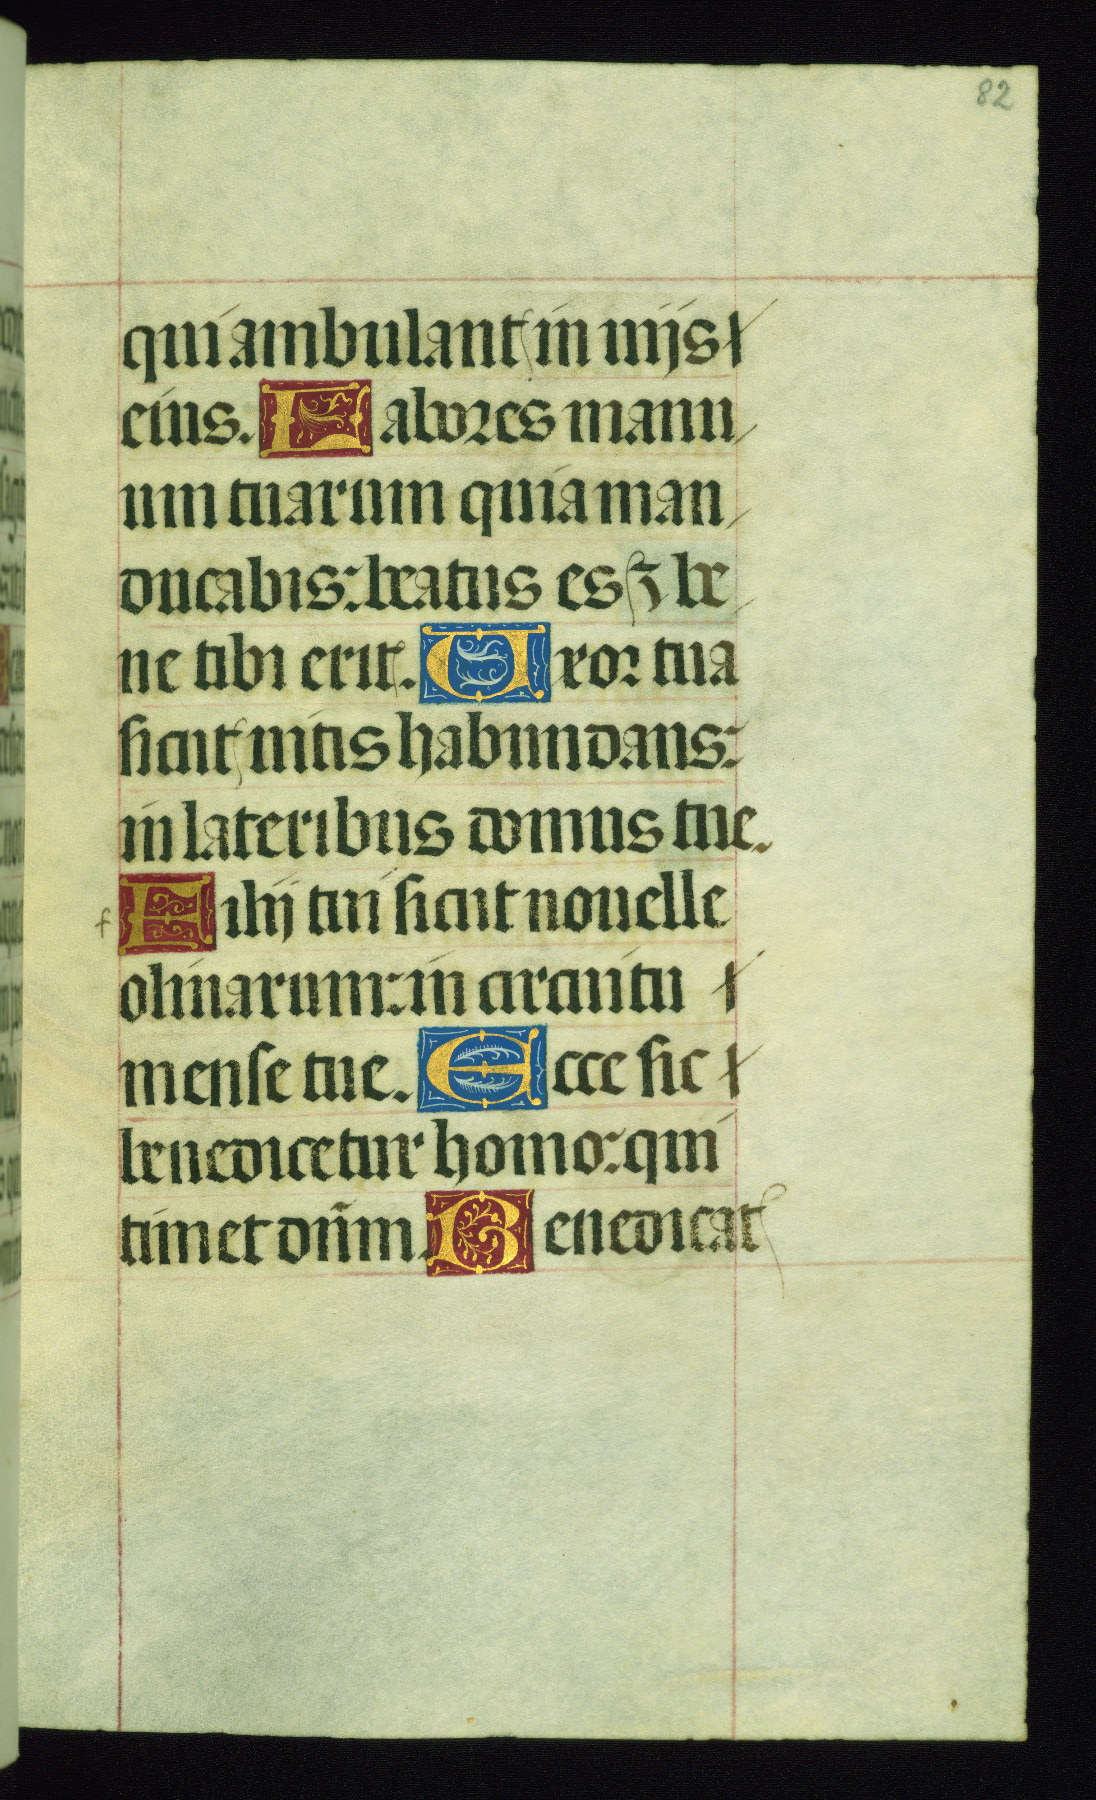 82
qui ambulant in uijs
eius. Labores manu
um tuarum quia man
ducabis: beatus es ⁊ be
ne tibi erit. Uxor tua
sicut uitis habundans:
in lateribus domus tue.
f Filij tui sicut nouelle
oliuarum: in circuitu
mense tue. Ecce sic
benedicetur homo: qui
timet dn̄m. Benedicat